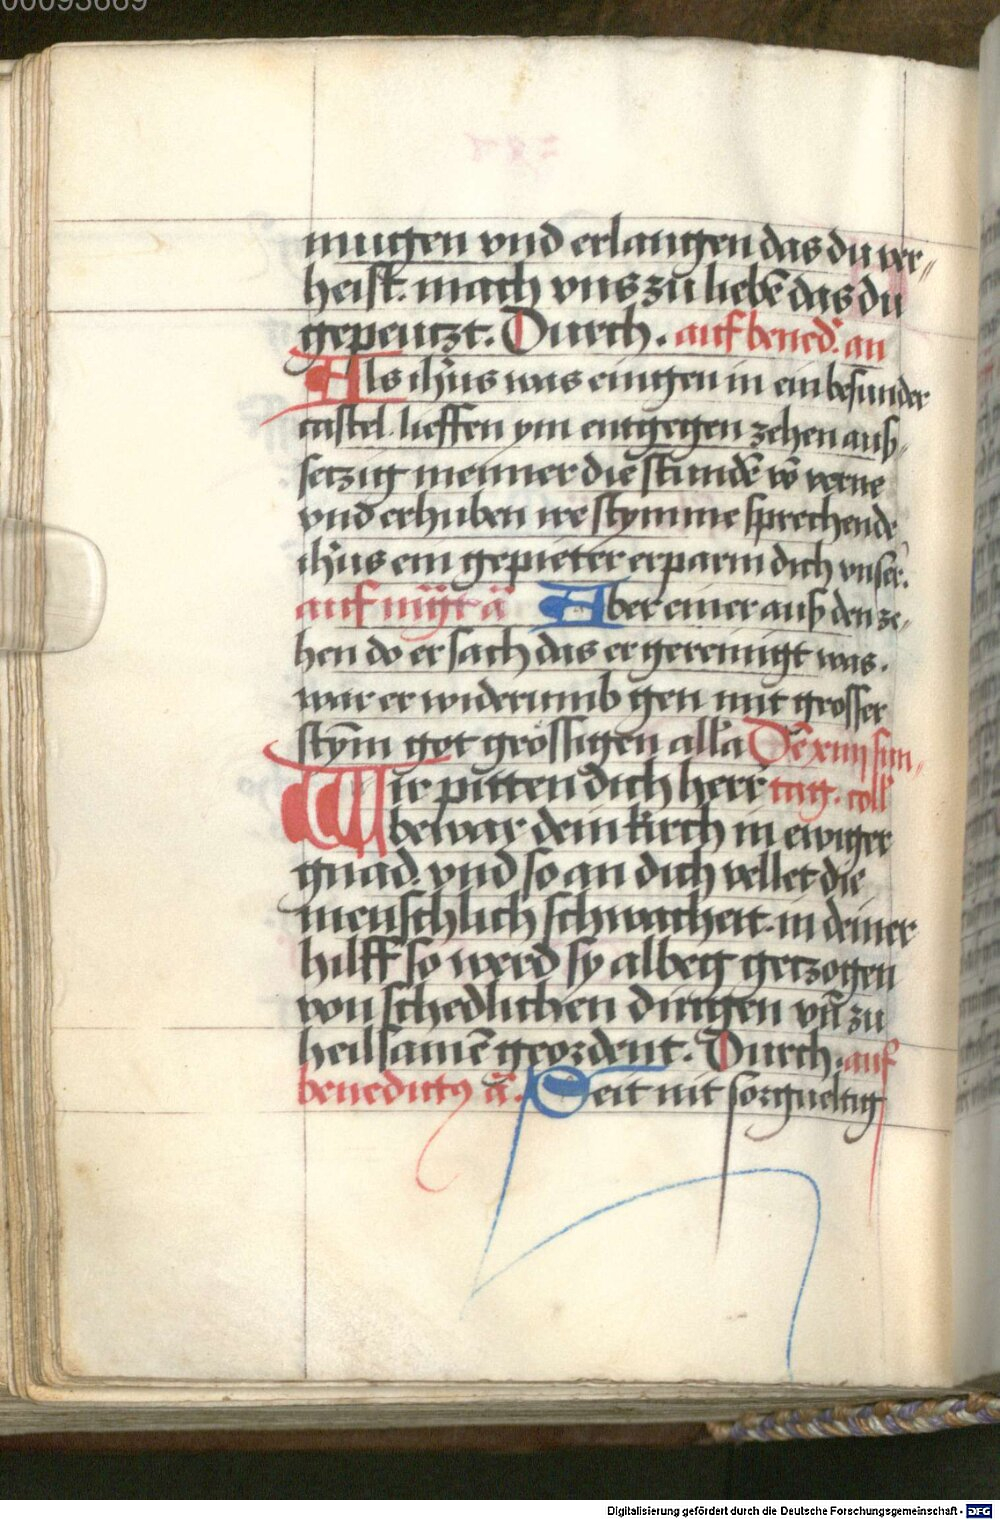 00093669
mugen vnd erlangen das du ver⸗
heist. mach vns zu liebē das du
gepeutzt. Durch. auf bened͛. an
Als ih̅us was eingen in ein besunder
castel. lieffen ym entgegen zehen auß⸗
setzig menner die stundē vō verne
vnd erhuben ire stymme sprechende
ih̅us ein gepieter erparm dich vnser.
auf mgt̄ ā Aber einer auß den ze⸗
hen do er sach das er gereinigt was.
war er widerumb gen mit grosser
stȳm got grössigen alla Dē xiiij sun⸗
Wir pitten dich herr tag. coll̓
bewar dein kirch in ewiger
gnad. vnd so an dich vellet die
menschlich schwacheit. in deiner
hilff so werd sy albeg getzogen
von schedlichen dingen vn̄ zu
heilsamē geordent. Durch. auf
benedictꝰ ā. Seit nit sorgueltig
Digitalisierung gefördert durch die Deutsche Forschungsgemeinschaft - DFG